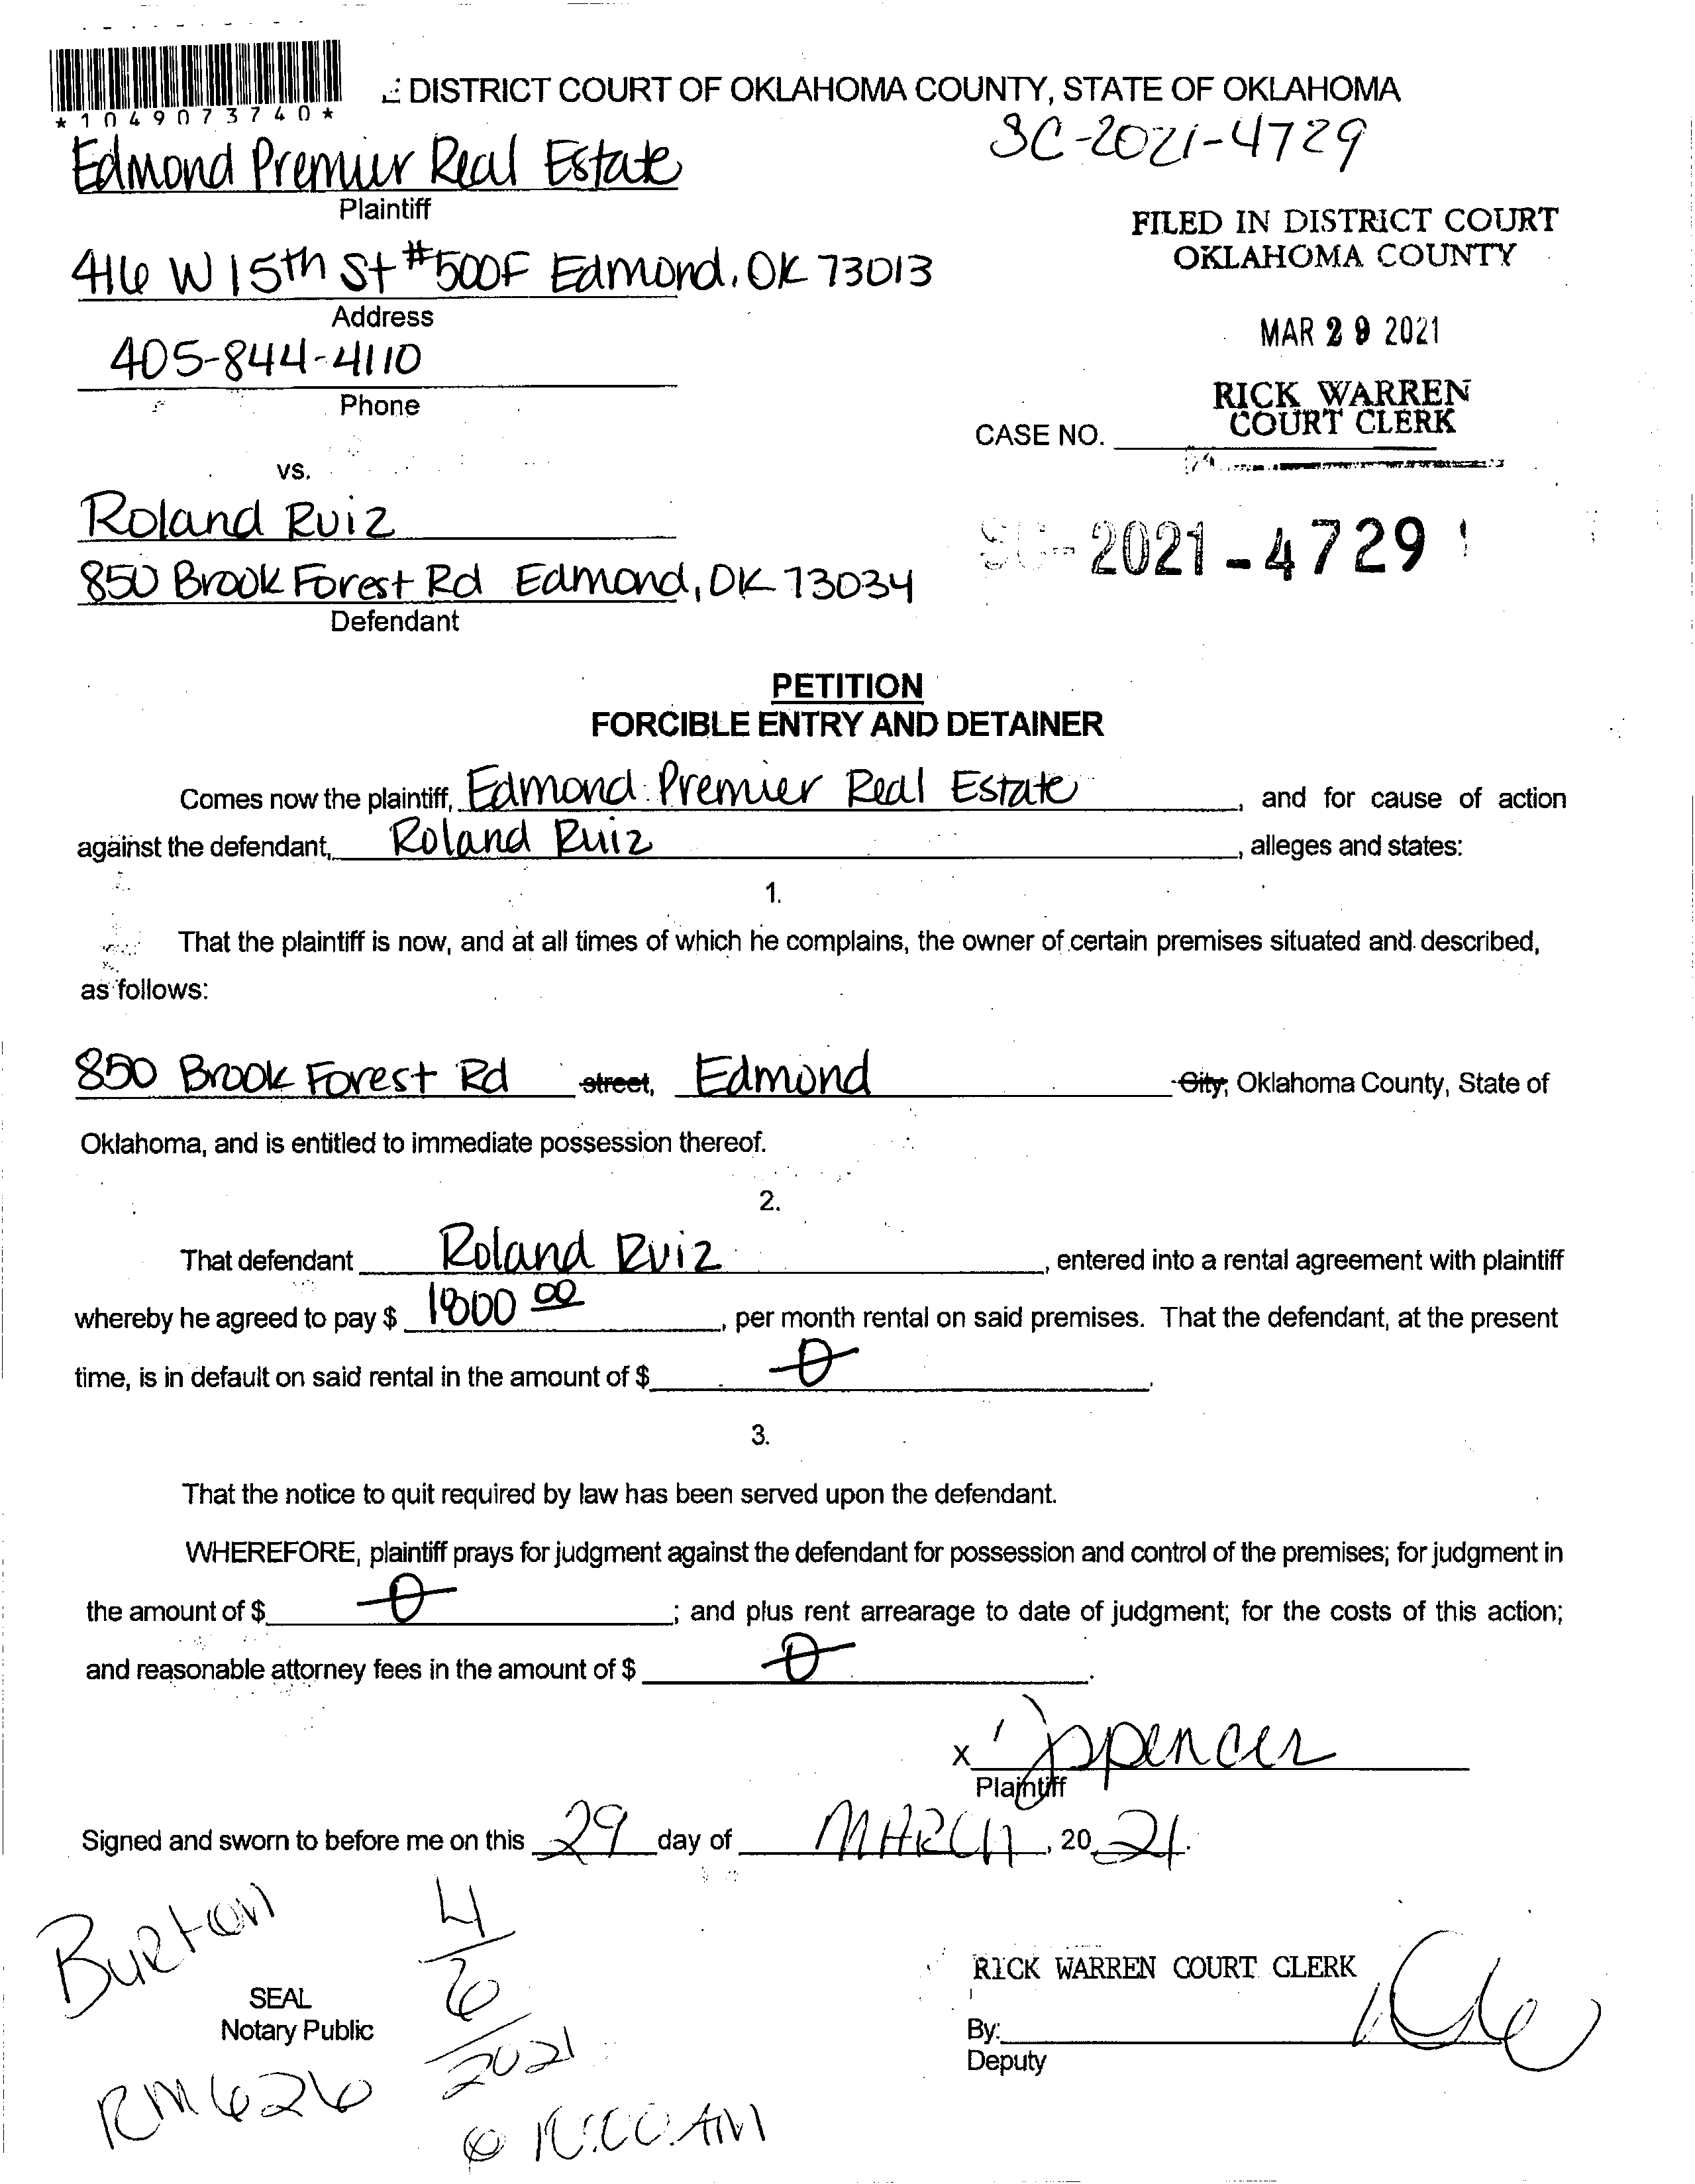 *1049073740*
DISTRICT COURT OF OKLAHOMA COUNTY, STATE OF OKLAHOMA
SC-2021-4729
Edmond Premier Real Estate
Plaintiff
FILED IN DISTRICT COURT
OKLAHOMA COUNTY
416 W 15th St #500F Edmond, OK 73013
Address
MAR 29 2021
405-844-4110
Phone
RICK WARREN
COURT CLERK
CASE NO.
vs.
Roland Ruiz
SC-2021-4729
850 Brook Forest Rd Edmond, OK 73034
Defendant
PETITION
FORCIBLE ENTRY AND DETAINER
Comes now the plaintiff, Edmond Premier Real Estate, and for cause of action
against the defendant, Roland Ruiz, alleges and states:
1.
That the plaintiff is now, and at all times of which he complains, the owner of certain premises situated and described,
as follows:
850 Brook Forest Rd street, Edmond City, Oklahoma County, State of
Oklahoma, and is entitled to immediate possession thereof.
2.
That defendant Roland Ruiz, entered into a rental agreement with plaintiff
whereby he agreed to pay $ 1800 00, per month rental on said premises. That the defendant, at the present
time, is in default on said rental in the amount of $ 0.
3.
That the notice to quit required by law has been served upon the defendant.
WHEREFORE, plaintiff prays for judgment against the defendant for possession and control of the premises; for judgment in
the amount of $ 0; and plus rent arrearage to date of judgment; for the costs of this action;
and reasonable attorney fees in the amount of $ 0.
x Spencer
Plaintiff
Signed and sworn to before me on this 29 day of MARCH, 20 21.
Burton
4/6/2021
RICK WARREN COURT CLERK
SEAL
Notary Public
By:
Deputy
RM 626
@ 10:00 AM